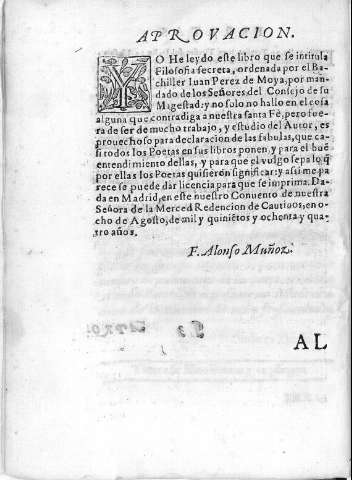 APROVACION.
YO He leydo este libro que se intitula
Filosofia secreta, ordenada por el Ba-
chiller Iuan Perez de Moya, por man-
dado de los Señores del Consejo de su
Magestad: y no solo no hallo en el cosa
alguna que contradiga a nuestra santa Fè, pero fue-
ra de ser de mucho trabajo, y estudio del Autor, es
prouechoso para declaracion de las fabulas, que ca-
si todos los Poetas en sus libros ponen, y para el buē
entendimiento dellas, y para que el vulgo sepa lo q̄
por ellas los Poetas quisierōn significar: y assi me pa
rece se puede dar licencia para que se imprima. Da-
da en Madrid, en este nuestro Conuento de nuestra
Señora de la Merced Redencion de Cautiuos, en o-
cho de Agosto, de mil y quiniētos y ochenta y qua-
tro años.
F. Alonso Muñoz.
AL